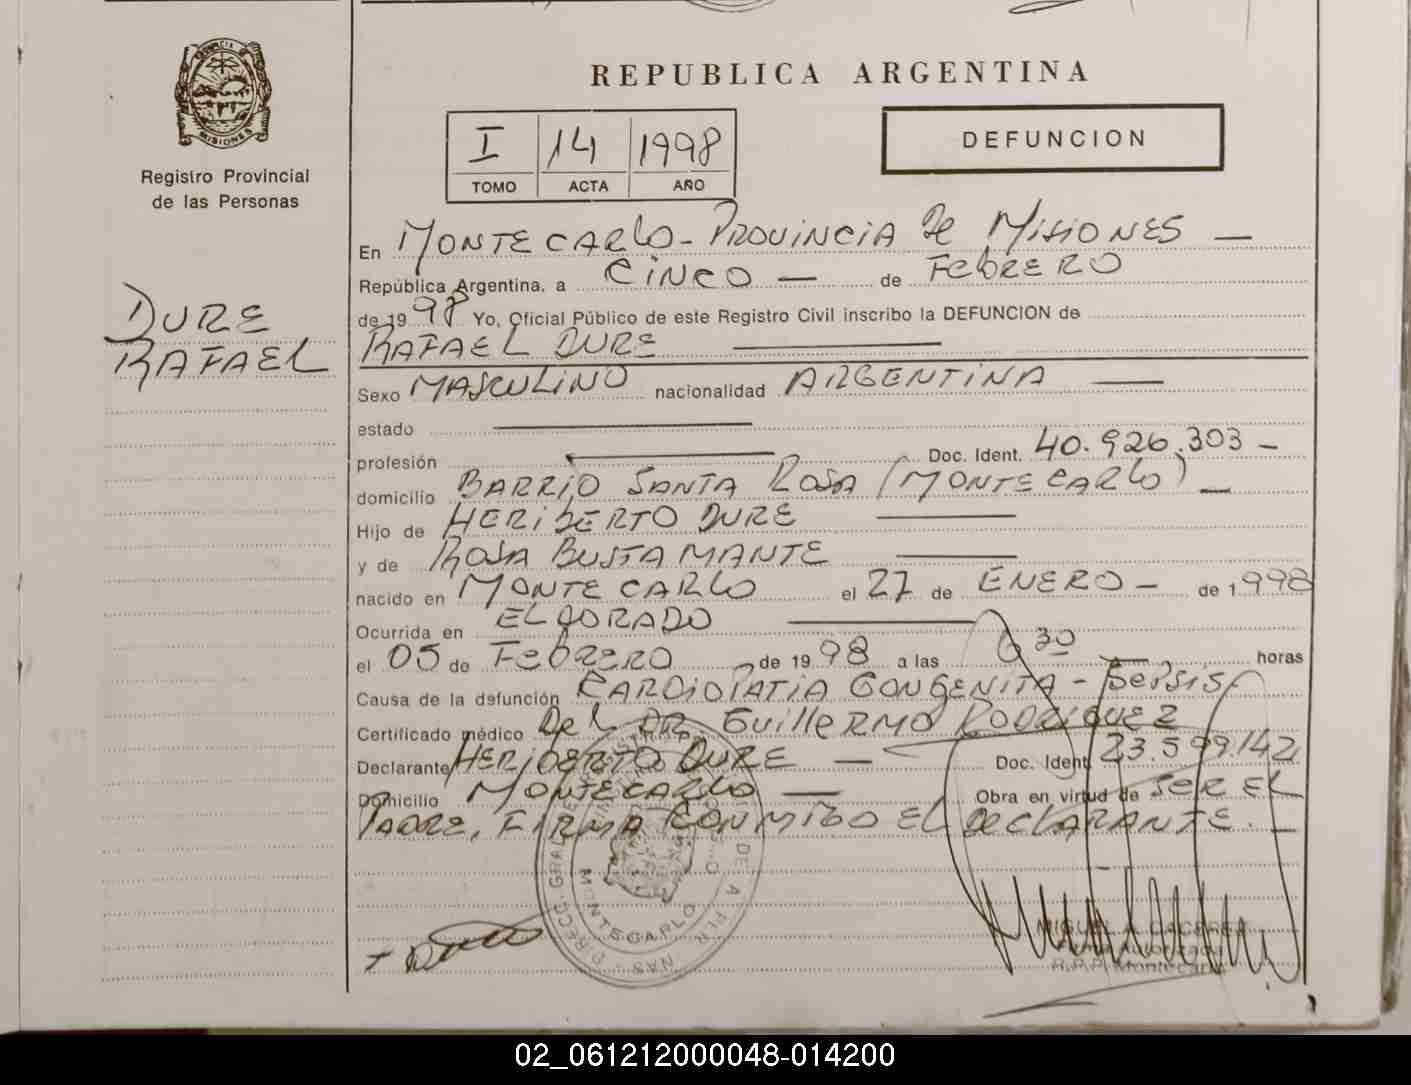 REPUBLICA ARGENTINA
PROVINCIA DE MISIONES
Registro Provincial
de las Personas
I 14 1998
TOMO ACTA AÑO
DEFUNCION
DURE
RAFAEL
En MONTECARLO - PROVINCIA De MISIONES —
República Argentina, a CINCO — de FebRERO
de 1998 Yo, Oficial Público de este Registro Civil inscribo la DEFUNCION de
RAFAEL DURE —
Sexo MASCULINO nacionalidad ARGENTINA —
estado —
profesión — Doc. Ident. 40.926.303 -
domicilio BARRIO SANTA ROSA (MONTECARLO) —
Hijo de HERIBERTO DURE —
y de ROSA BUSTAMANTE —
nacido en MONTECARLO el 27 de ENERO - de 1998
Ocurrida en ELDORADO —
el 05 de FebRERO de 1998 a las 6 30 horas
Causa de la defunción CARDIOPATIA CONGENITA - SEPSIS
Certificado médico Del DR. GuilleRMO RODRIGUEZ
Declarante HERIBERTO DURE — Doc. Ident. 23.599.142
Domicilio MONTECARLO — Obra en virtud de SER EL
PADRE, FIRMA CONMIGO EL DECLARANTE. —
MONTECARLO
R.P.P. Montecarlo
02_061212000048-014200